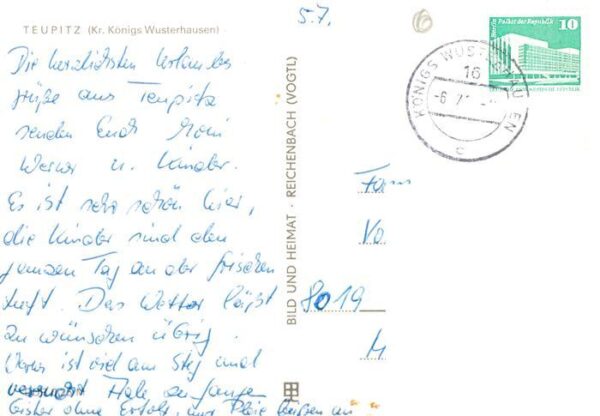 TEUPITZ (Kr. Königs Wusterhausen)
5.7.
Die herzlichsten Urlaubs
grüße aus Teupitz
senden Euch Moni
Werner u. Kinder.
Es ist sehr schön hier,
die Kinder sind den
ganzen Tag an der frischen
Luft. Das Wetter läßt
zu wünschen übrig.
Werner ist viel am Steg und
versucht Aale zu fangen
Bisher ohne Erfolg, nur Pleie beißen
BILD UND HEIMAT · REICHENBACH (VOGTL)
Berlin Palast der Republik 10
KÖNIGS WUSTERHAUSEN
16
-6.7.
c
Fam
8019